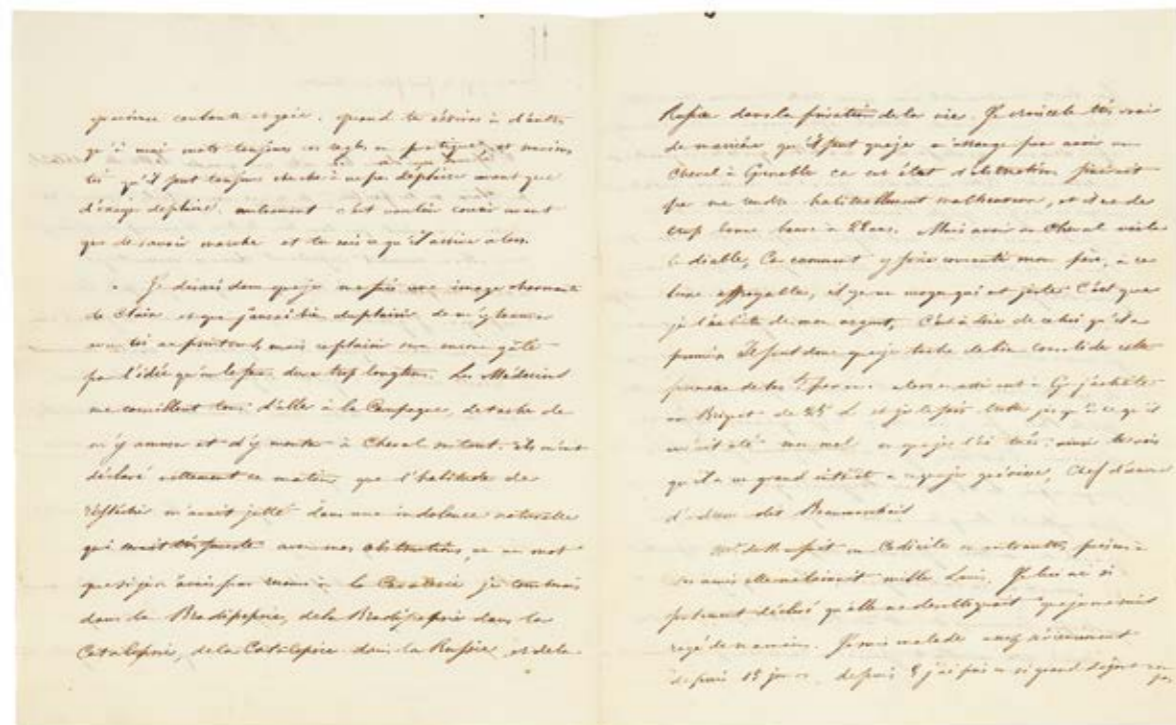 contente et gaie. quand tu écriras à d'autres
qu'à moi mets toujours ces règles en pratique, et souviens
toi qu'il faut toujours chercher à ne pas déplaire avant que
d'essayer de plaire. autrement c'est vouloir courir avant
que de savoir marcher et tu sais ce qu'il arrive alors.
Je disais donc que je me fais une image charmante
de Claix et que j'aurai bien du plaisir de m'y trouver
avec toi au printemps, mais ce plaisir sera encore gâté
par l'idée qu'il le peu durer trop longtems. Les Médecins
me conseillent tous d'aller à la Campagne, de tacher de
m'y amuser et d'y monter à Cheval surtout. ils m'ont
déclaré nettement ce matin que l'habitude de
réfléchir m'avait jetté dans une indolence naturelle
qui avec mes obstructions, en un mot
que si je n'avais pas recours à la je tombais
dans la Bradipepsie, de la Bradipepsie dans la
Catalepsie, de la Catalepsie dans la et de la
dans la privation de la vie. Je crois cela très vrai
de manière qu'il faut que je m'arrange pour avoir un
Cheval à Grenoble car cet état d'obstruction finirait
par me rendre habituellement malheureux, et il est de
trop bonne heure à 22 ans. Mais avoir un Cheval voilà
le diable, Car comment y faire consentir mon père, à ce
luxe effroyable, il y a un moyen qui est joli. C'est que
je l'achète de mon argent, C'est à dire de celui qu'il a
promis Il faut donc que je tache de bien consolider cette
promesse de alors en arrivant à G. j'achète
un Briquet de 25 L. et je le fais jusqu'à ce qu'il
m'ait ôté mon mal ou que je l'ai tué. ainsi tu vois
qu'il a un grand intérêt à ce que je guérisse, Chef d'œuvre
d'adresse
fait un Codicile en outre
ses amis elle me laissait mille Louis. Je lui ai si
fortement déclaré qu'elle me désobligeait que j'en serai
rayé de nouveau. Je suis malade assez sérieusement
depuis 15 jours, depuis 8 j'ai pris un si grand dégoût